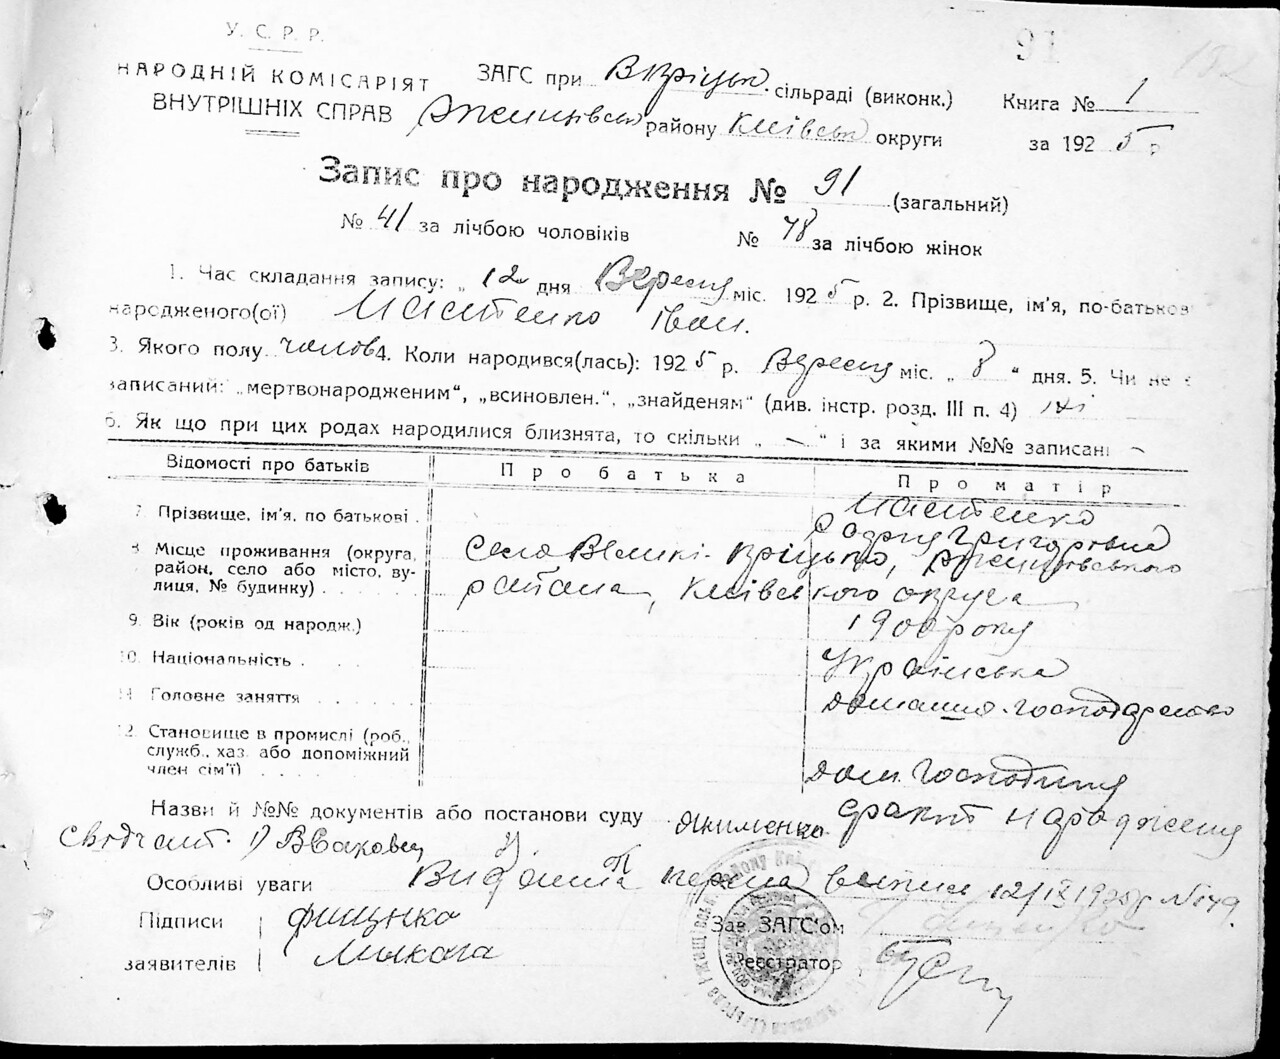 У. С. Р. Р.
91
НАРОДНІЙ КОМІСАРІЯТ
ВНУТРІШНІХ СПРАВ
ЗАГС при В Кріцьк. сільраді (виконк.) Книга № 1
району Київськ округи за 1925 р
Запис про народження № 91 (загальний)
№ 41 за лічбою чоловіків № 48 за лічбою жінок
1. Час складання запису: „ 12 дня Вересня міс. 1925 р. 2. Прізвище, ім'я, по-батькові
народженого(ої) Іван.
3. Якого полу чолов 4. Коли народився(лась): 1925 р. Вересня міс. „ 8 “ дня. 5. Чи не є
записаний: „мертвонародженим“, „всиновлен.“, „знайденям“ (див. інстр. розд. III п. 4) ні
6. Як що при цих родах народилися близнята, то скільки „ — “ і за якими №№ записані —
Відомості про батьків Про батька Про матір
7. Прізвище, ім'я, по батькові . Григоровна
8. Місце проживання (округа, район, село або місто, вулиця, № будинку) . . . . . .
село Великі-Кріцьки,
району, Київського округа
9. Вік (років од народж.) 1900 року
10. Національність . . . . Українська
11. Головне заняття . . . . . . . домашнє господарство
12. Становище в промислі (роб., служб., хаз. або допоміжний член сім'ї) . . . . . дом. господиня
Назви й №№ документів або постанови суду Якименко факт народження
свідчат. 1)
Особливі уваги Видана перша виписка 12/IX 1925 р №149.
Підписи заявителів
Микола
Зав. ЗАГС'ом
Реєстратор